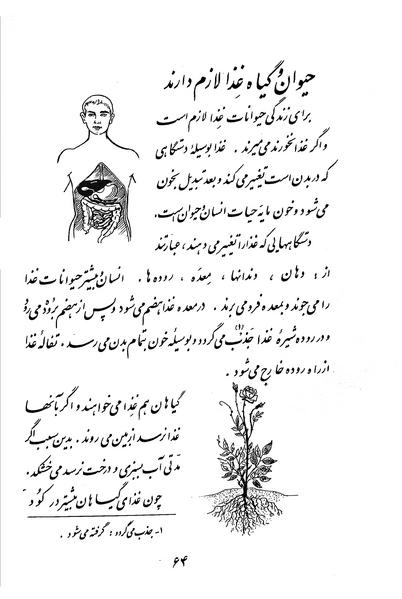 حیوان و گیاه غذا لازم دارند
برای زندگی حیوانات غذا لازم است
و اگر غذا نخورند می‌میرند . غذا بوسیلهٔ دستگاهی
که در بدن است تغییر می‌کند و بعد تبدیل بخون
می‌شود و خون مایهٔ حیات انسان و حیوان است.
دستگاههایی که غذا را تغییر می‌دهند، عبارتند
از : دهان ، دندانها، معده ، روده‌ها . انسان و بیشتر حیوانات غذا
را می‌جوند و بمعده فرو می‌برند . در معده غذا هضم می‌شود و پس از هضم بروده می‌رود
و در روده شیرهٔ غذا جذب(۱) می‌گردد و بوسیلهٔ خون بتمام بدن می‌رسد . تفالهٔ غذا
از راه روده خارج می‌شود .
گیاهان هم غذا می‌خواهند و اگر بآنها
غذا نرسد از بین می‌روند . بدین سبب اگر
مدتی آب بسبزی و درخت نرسد می‌خشکد .
چون غذای گیاهان بیشتر در کود
۱- جذب می‌گردد : گرفته می‌شود .
۶۴